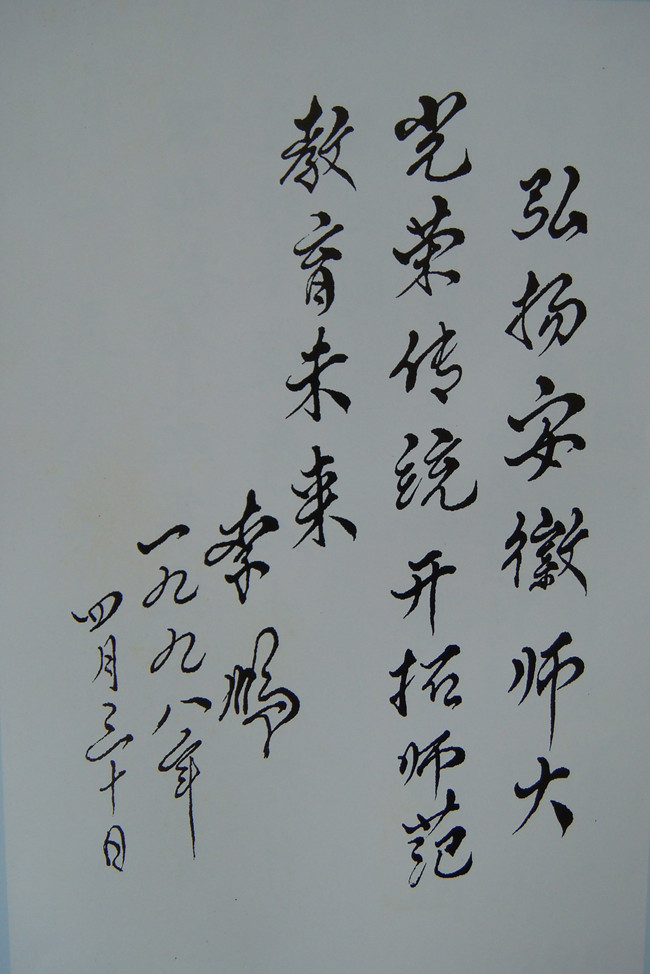 弘扬安徽师大
光荣传统开拓师范
教育未来
李鹏
一九九八年
四月三十日